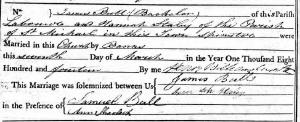 No James Ball (Bachelor) of this Parish
Labourer and Hannah Staley of the Parish
of St Michael in this Town, Spinster were
Married in this Church by Banns
this seventh Day of March in the Year One Thousand Eight
Hundred and fourteen By me
This Marriage was solemnized between Us { James Ball
in the Presence of { Samuel Ball